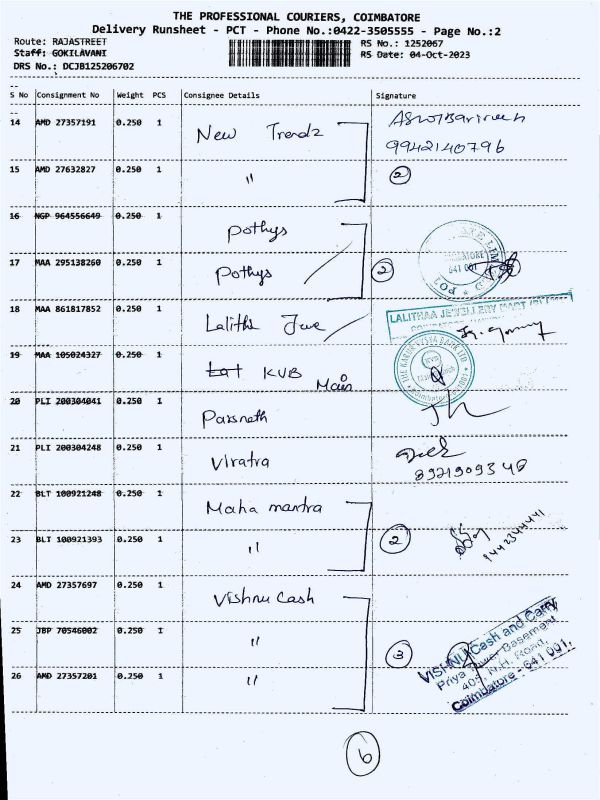 THE PROFESSIONAL COURIERS, COIMBATORE
Delivery Runsheet - PCT - Phone No.:0422-3505555 - Page No.:2
Route: RAJASTREET
RS No.: 1252067
Staff: GOKILAVANI
RS Date: 04-Oct-2023
DRS No.: DCJB125206702
S No Consignment No Weight PCS Consignee Details Signature
14 AMD 27357191 0.250 1 New Trendz
9942140796
15 AMD 27632827 0.250 1 " 2
16 NGP 964556649 0.250 1 Pothys
17 MAA 295138260 0.250 1 Pothys 2
COIMBATORE
641 001
18 MAA 861817852 0.250 1 Lalitha Jwe
LALITHAA JEWELLERY MART
19 MAA 105024327 0.250 1 Lat KVB Main
THE KARUR VYSYA BANK LTD
KVB
Coimbatore
20 PLI 200304041 0.250 1 Parsnath
21 PLI 200304248 0.250 1 Viratra
22 BLT 100921248 0.250 1 Maha mantra
23 BLT 100921393 0.250 1 " 2
9442344441
24 AMD 27357697 0.250 1 Vishnu Cash
25 JBP 70546002 0.250 1 " 3
26 AMD 27357201 0.250 1 "
VISHNU Cash and Carry
Priya Tower Basement
N.H. Road,
Coimbatore - 641 001.
6